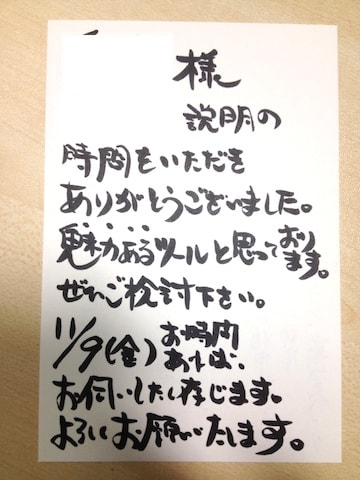 様
説明の
時間をいただき
ありがとうございました。
魅力あるツールと思っております。
ぜひご検討下さい。
11/9(金)お時間あれば、
お伺いしたく存じます。
よろしくお願いいたします。